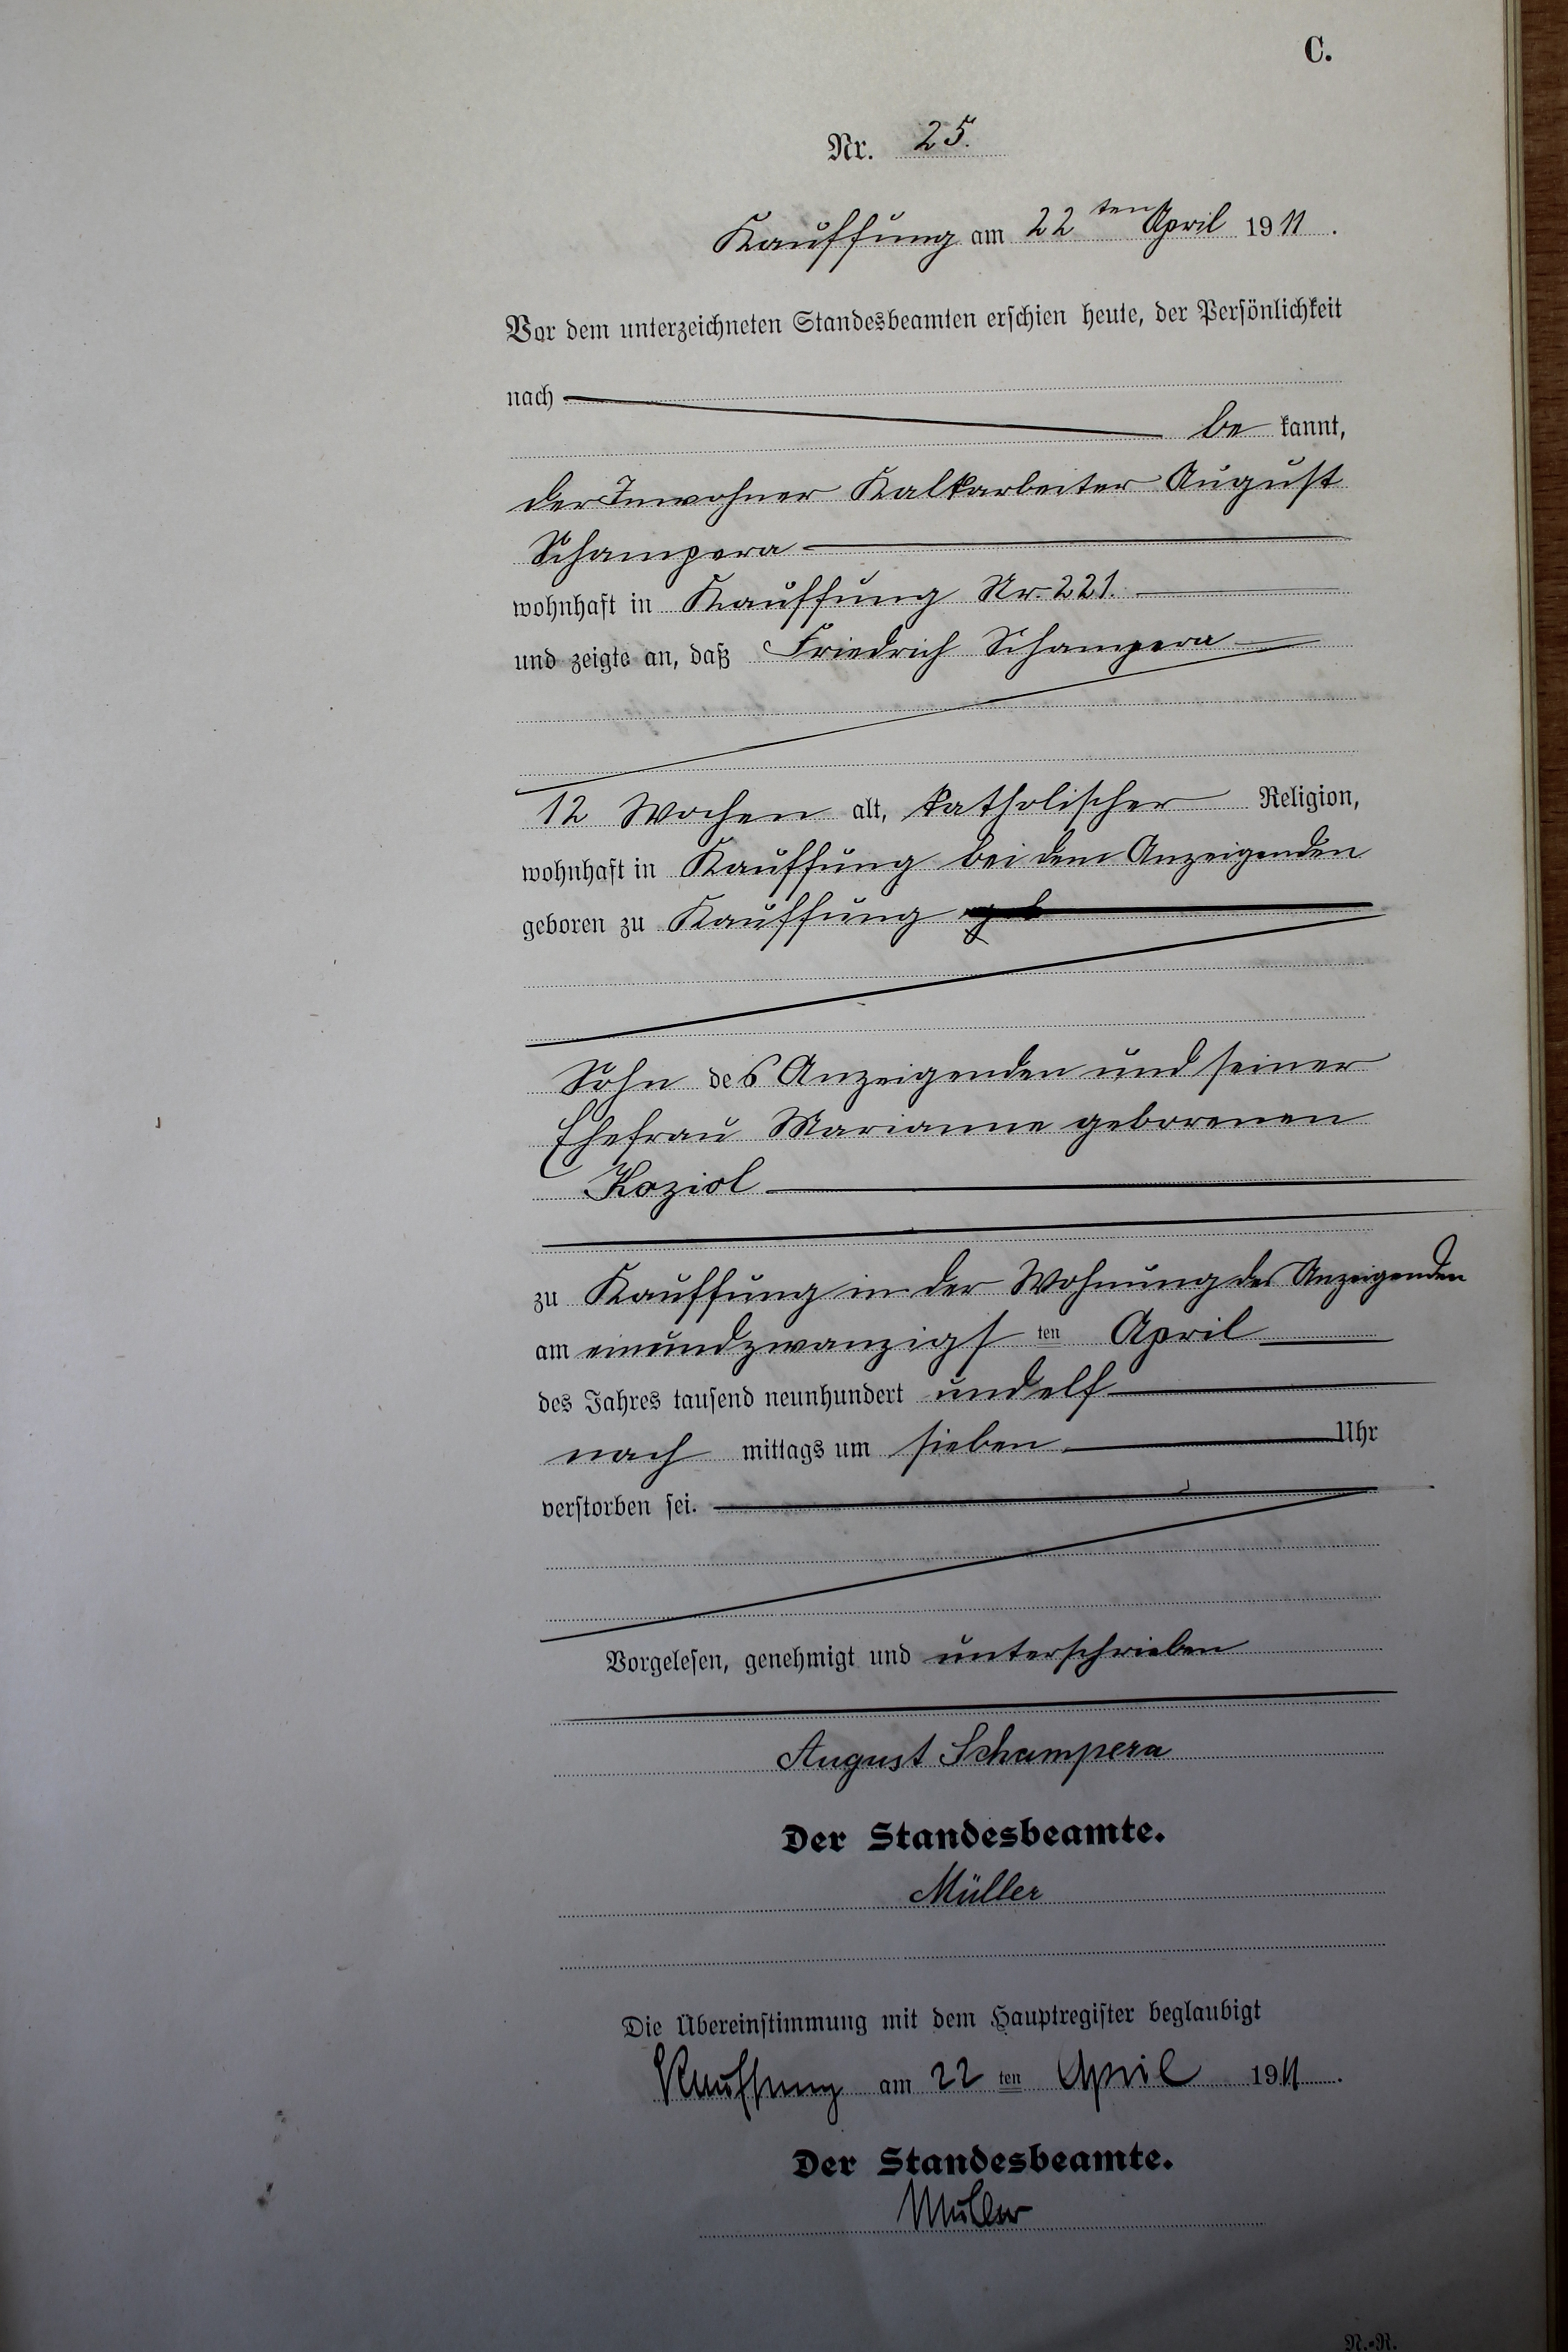 C.
Nr. 25.
Kauffung am 22ten April 1911.
Vor dem unterzeichneten Standesbeamten erschien heute, der Persönlichkeit
nach
bekannt,
der Inwohner Kalkarbeiter August
Schampera
wohnhaft in Kauffung Nr. 221.
und zeigte an, daß Friedrich Schampera
12 Wochen alt, katholischer Religion,
wohnhaft in Kauffung bei dem Anzeigenden
geboren zu Kauffung
Sohn des Anzeigenden und seiner
Ehefrau Marianne geborenen
Koziol
zu Kauffung in der Wohnung des Anzeigenden
am einundzwanzigsten April
des Jahres tausend neunhundert und elf
nachmittags um sieben Uhr
verstorben sei.
Vorgelesen, genehmigt und unterschrieben
August Schampera
Der Standesbeamte.
Müller
Die Übereinstimmung mit dem Hauptregister beglaubigt
Kauffung am 22ten April 1911.
Der Standesbeamte.
Müller
N.-R.